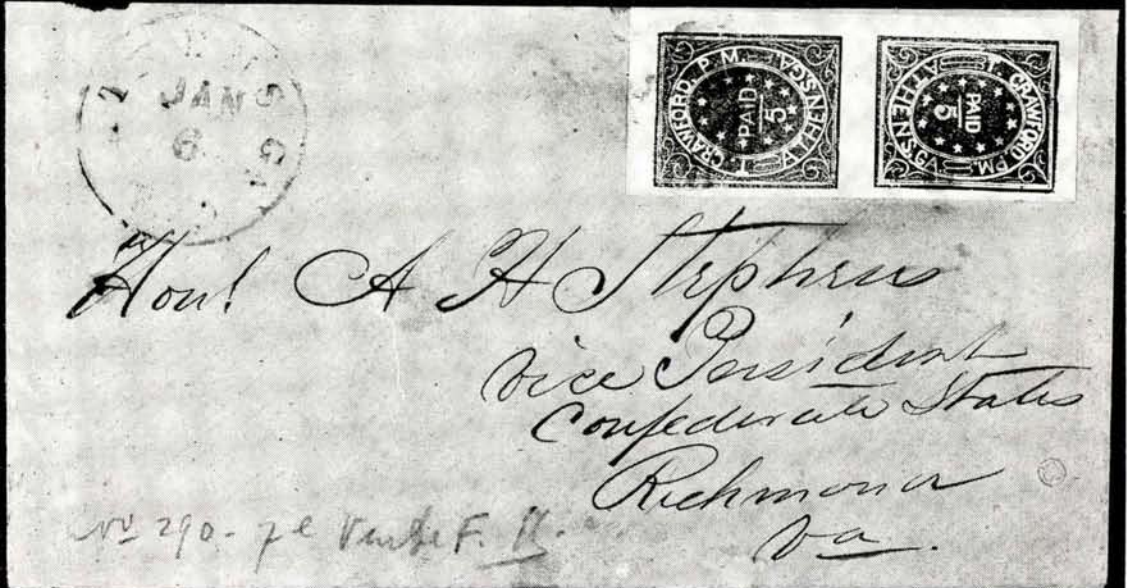 JAN
6
T. CRAWFORD. P.M.
ATHENS, GA.
PAID
5
T. CRAWFORD PM.
ATHENS, GA.
PAID
5
Hon! A H Stephens
Vice President
Confederate States
Richmond
Va.
No 290. 7e Vente F.